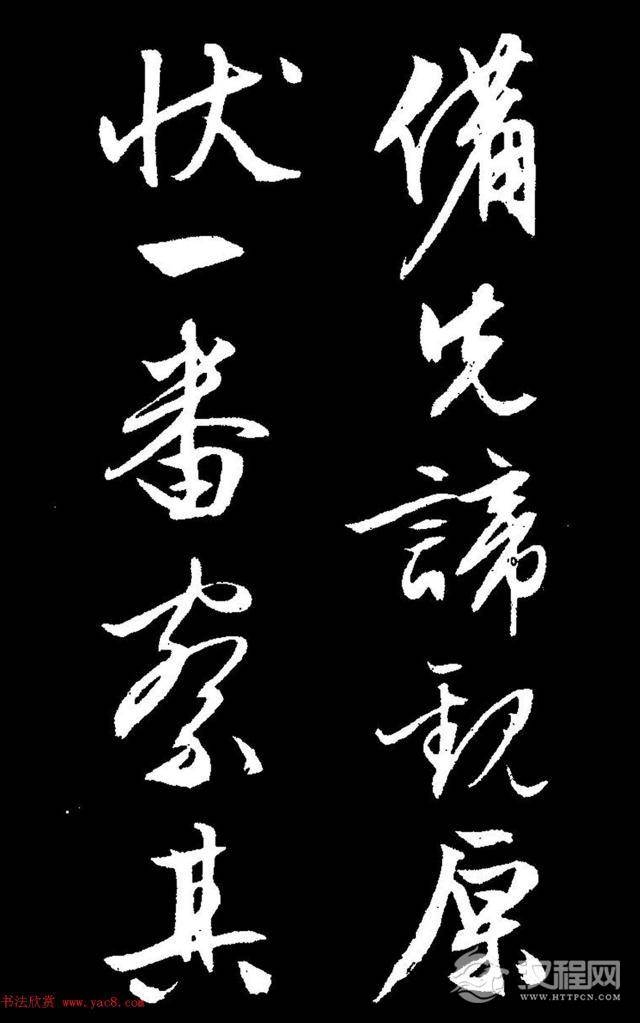 備先諦觀厡
狀一番察其
书法欣赏 www.yac8.com
汉程网
WWW.HTTPCN.COM